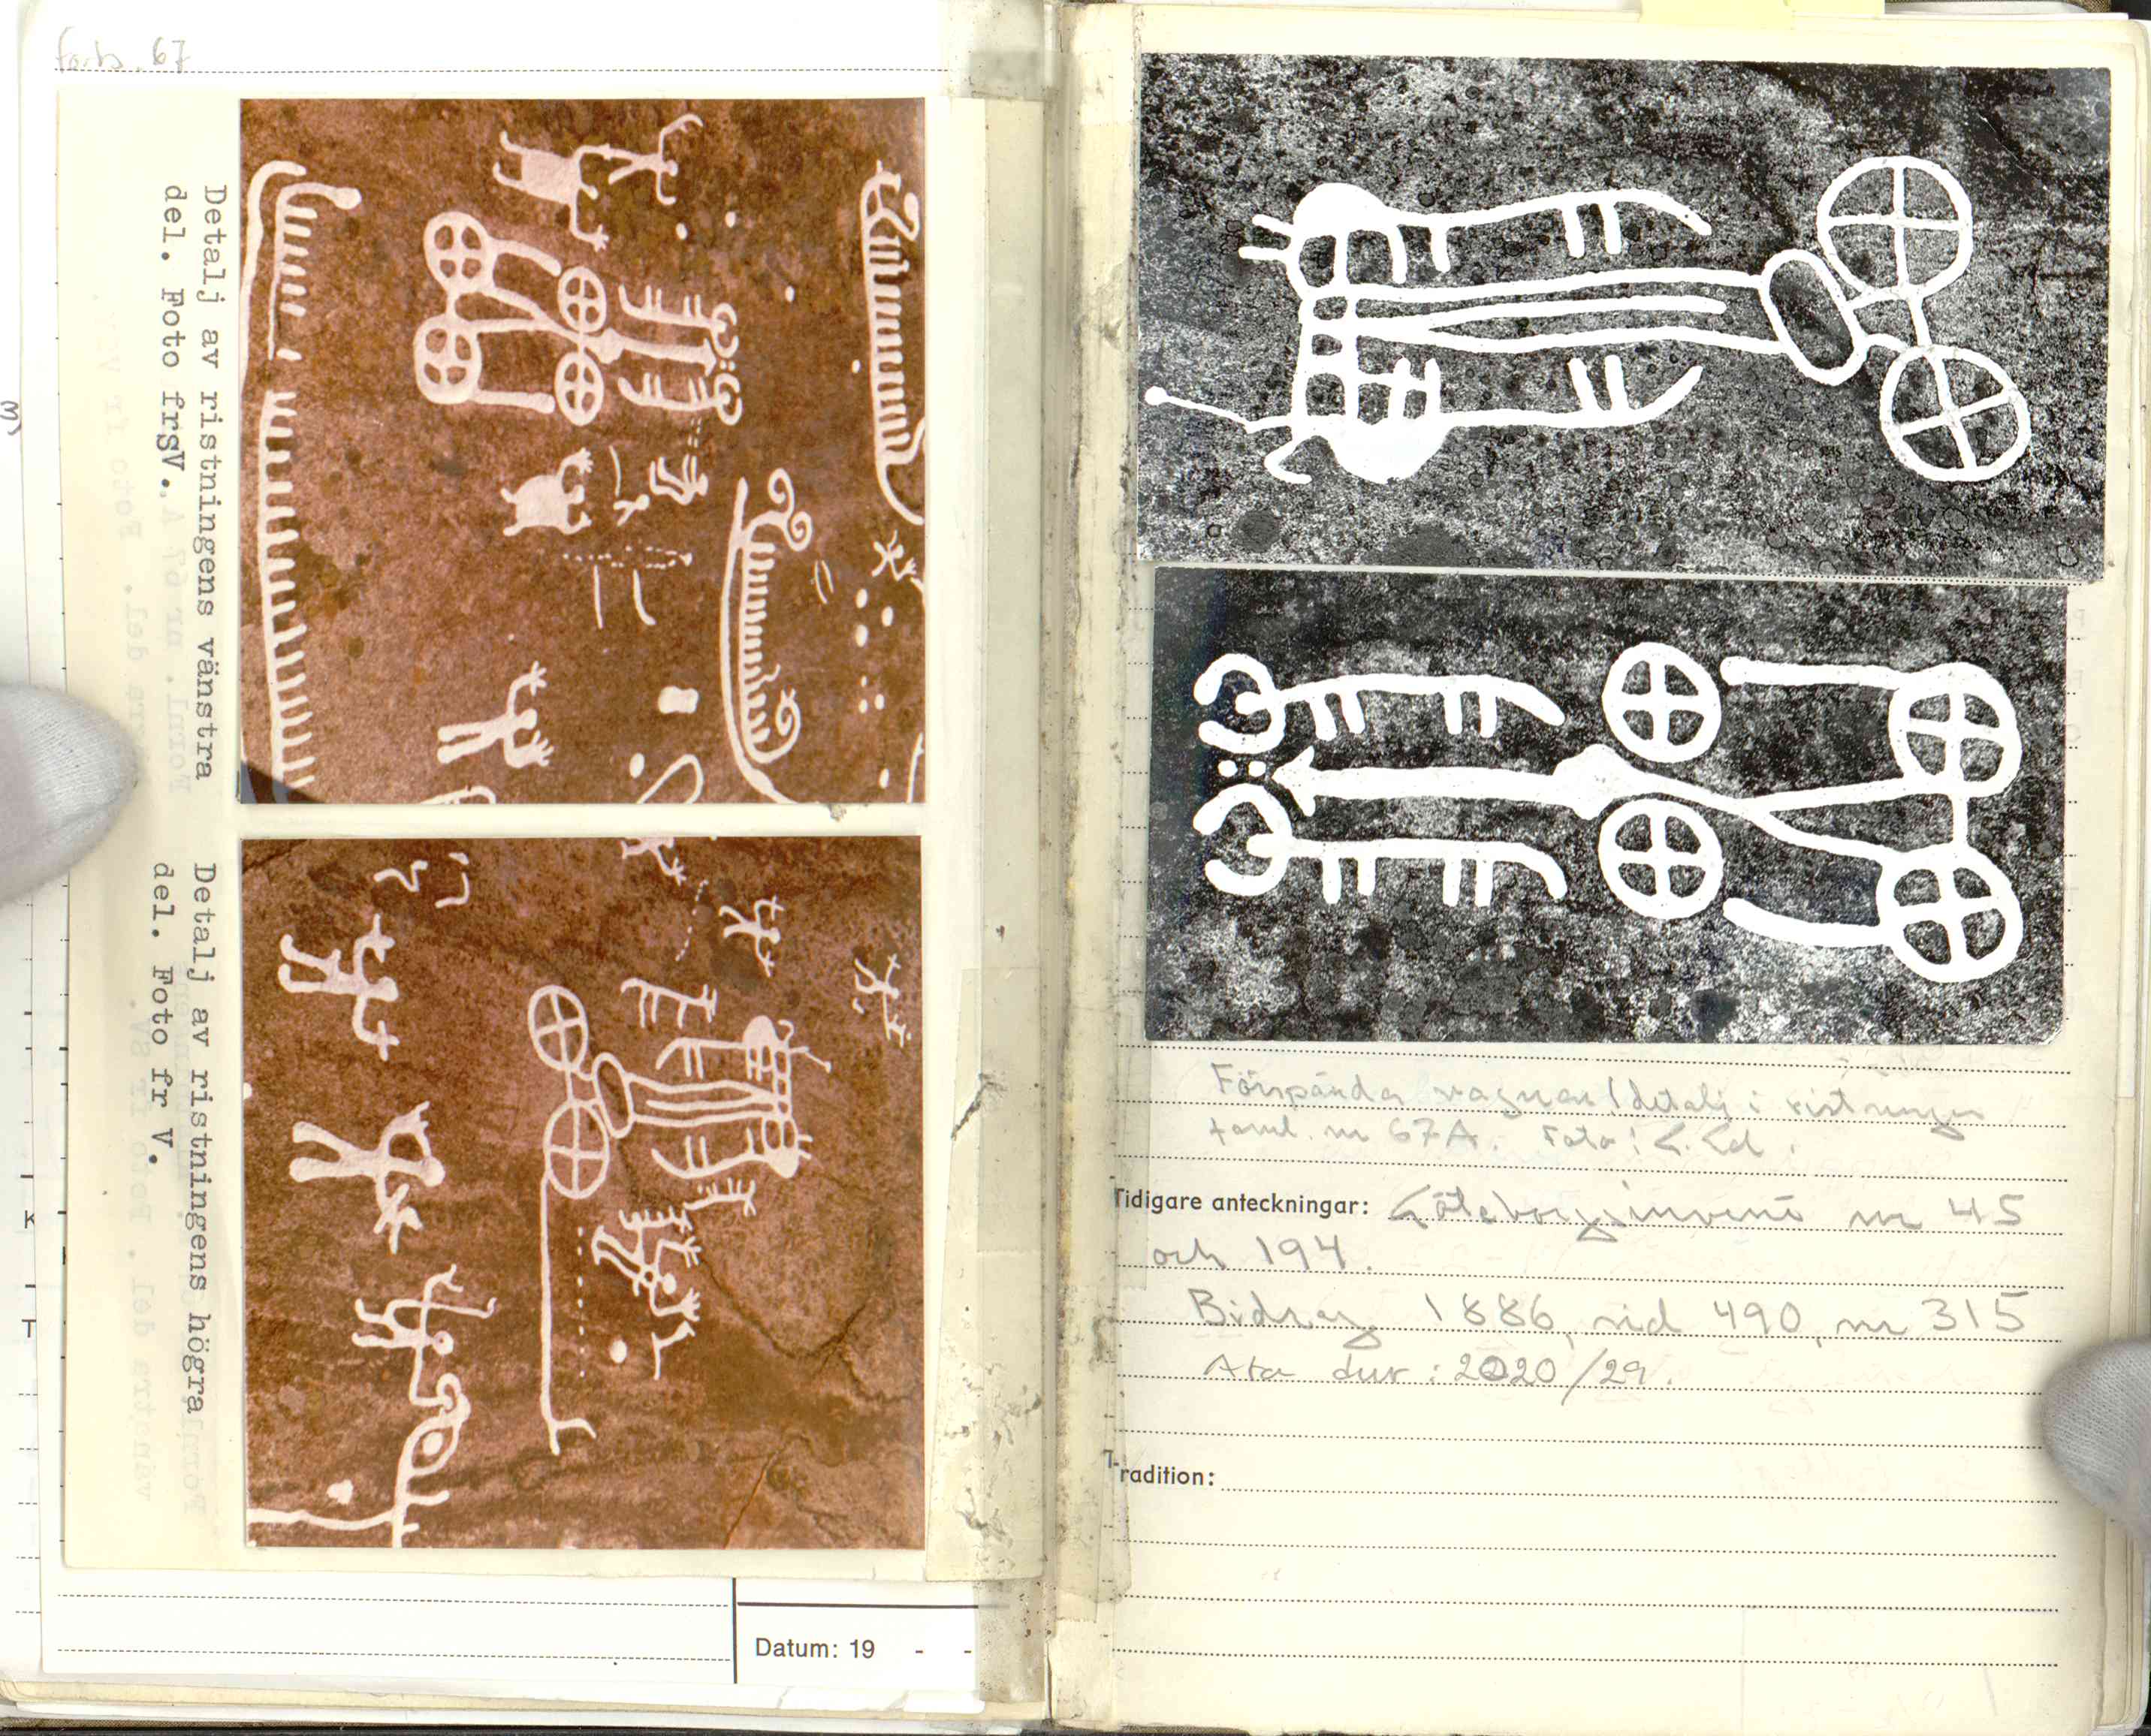 forts. 67
Detalj av ristningens vänstra
del. Foto frSV.
Detalj av ristningens högra
del. Foto fr V.
Datum: 19 - -
Förspända vagnar (detalj i ristningen
forml. nr 67A. Foto:
Tidigare anteckningar: Göteborgsinvent nr 45
och 194.
Bidrag 1886, sid 490, nr 315
Ata dnr: 2020/29.
Tradition:
K
T